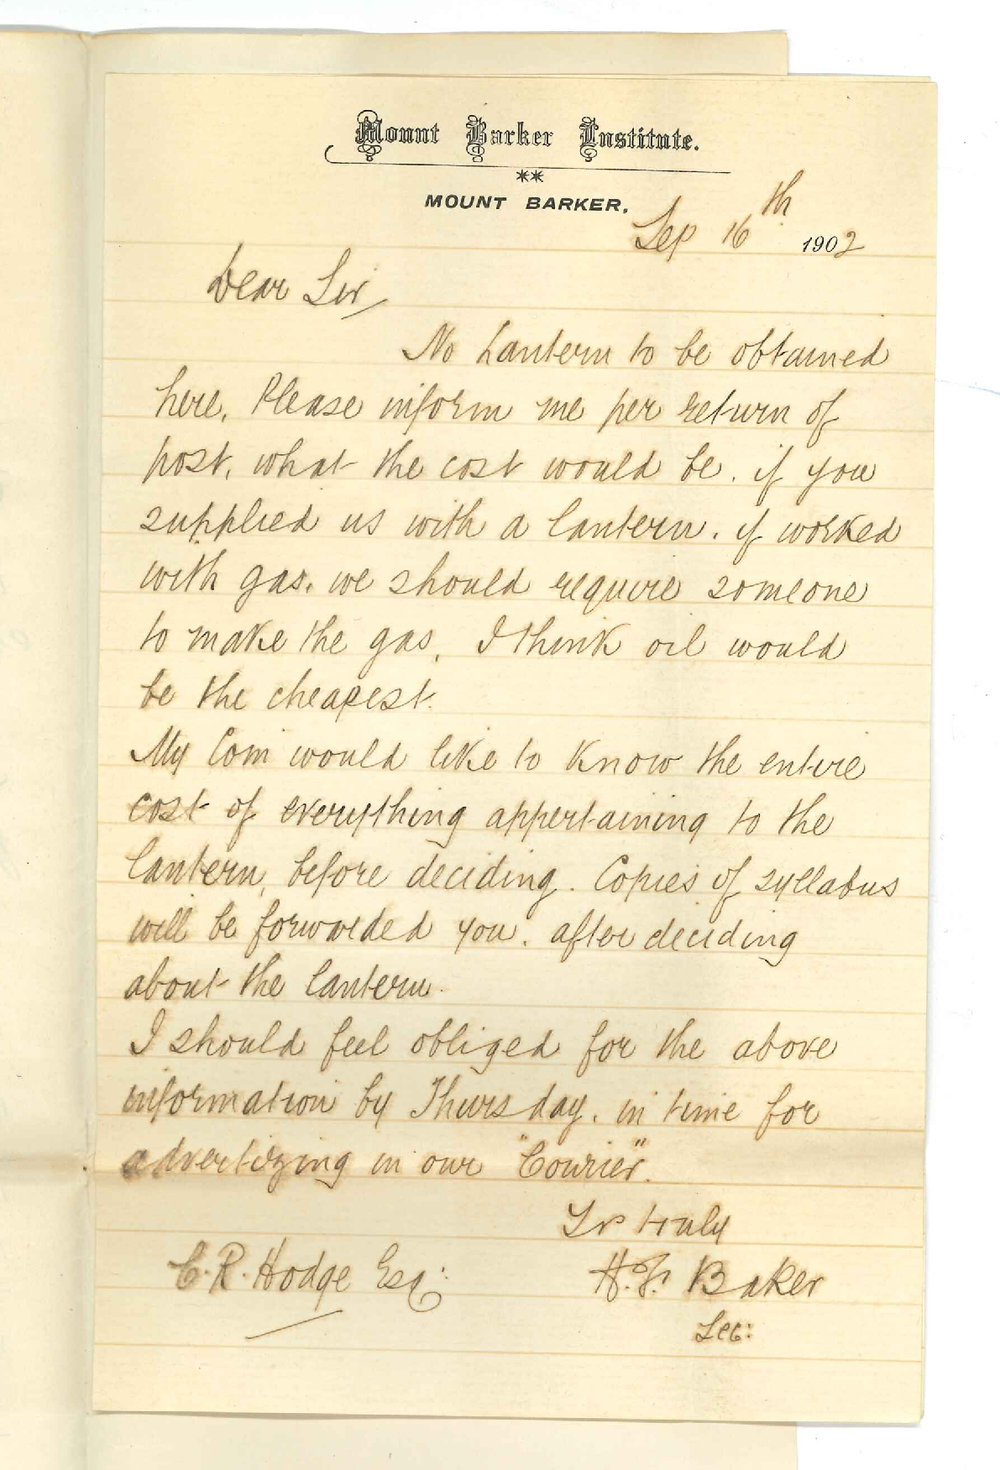 Mount Barker Institute.
MOUNT BARKER,
Sep 16th 1902
Dear Sir,
No Lantern to be obtained
here. Please inform me per return of
post, what the cost would be. if you
supplied us with a lantern. if worked
with gas. we should require someone
to make the gas. I think oil would
be the cheapest.
My Com would like to know the entire
cost of everything appertaining to the
lantern, before deciding. Copies of syllabus
will be forwarded you. after deciding
about the lantern.
I should feel obliged for the above
information by Thursday. in time for
advertizing in our "Courier".
Yrs truly
C. R. Hodge Esq:
H. F. Baker
Sec: